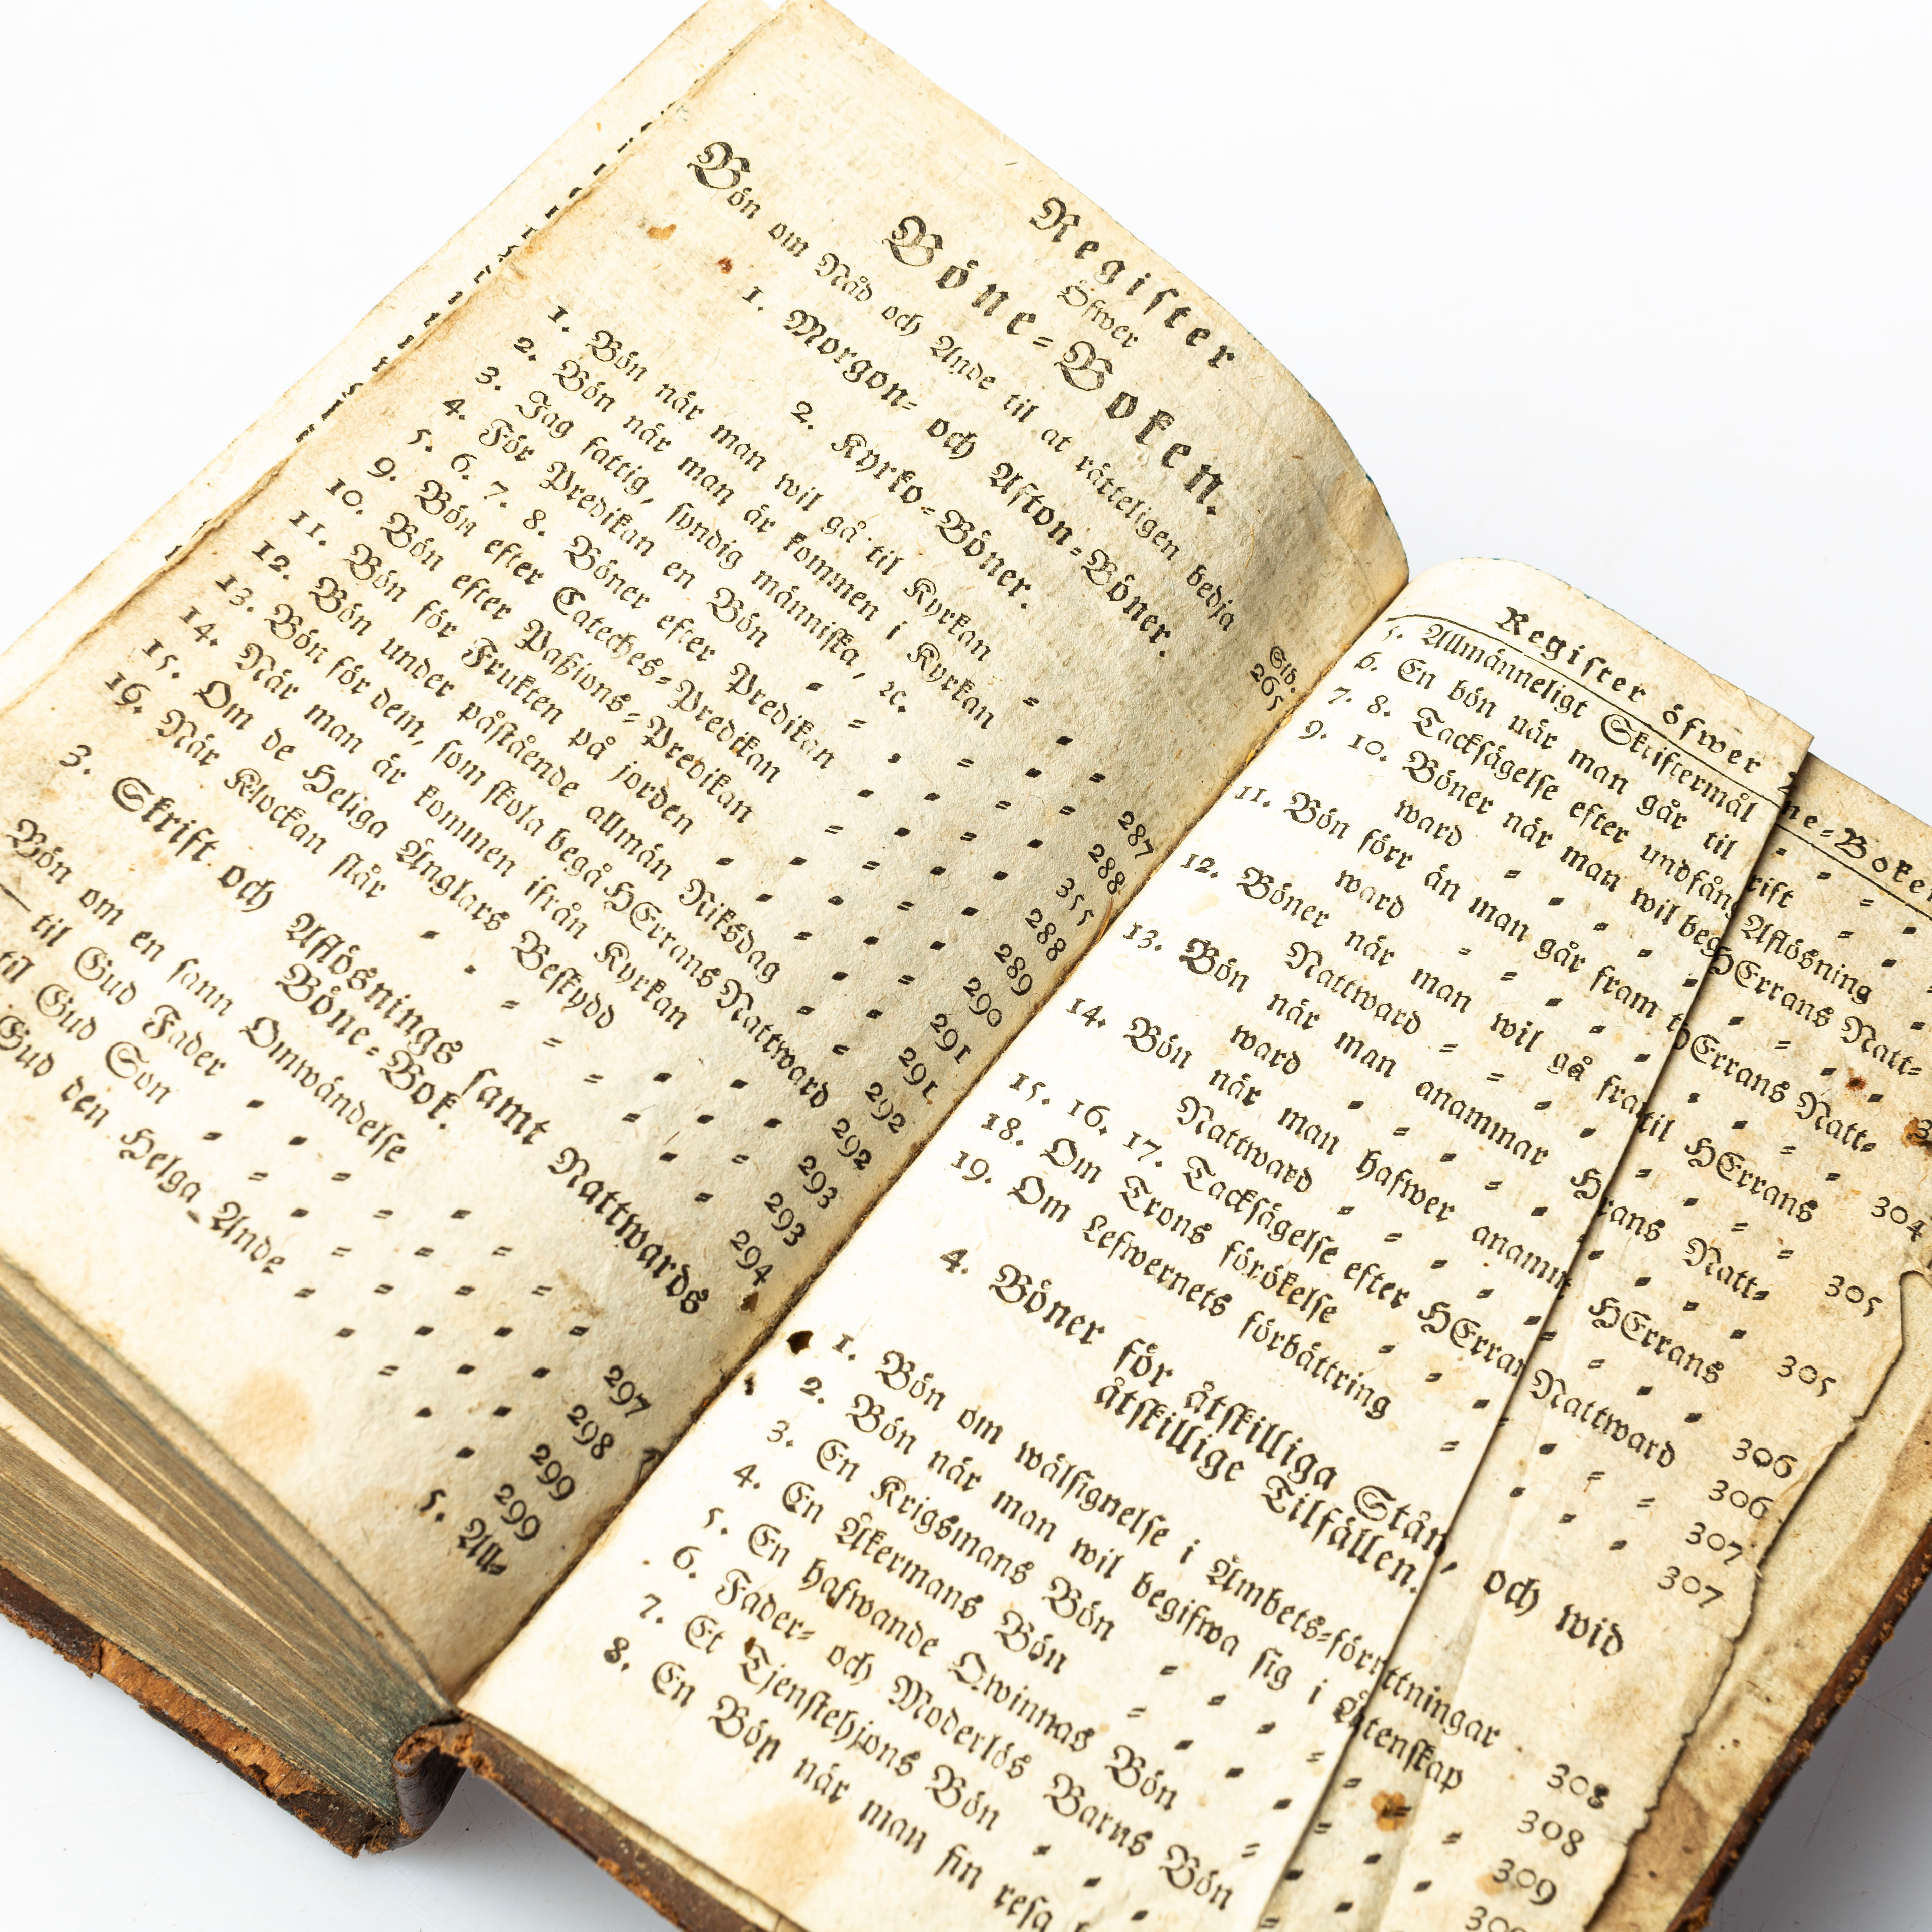 Register
Öfwer
Böne=Boken.
Bön om Nåd och Ande til at rätteligen bedja Sid. 265
1. Morgon= och Afton=Böner.
2. Kyrko=Böner.
1. Bön når man wil gå til Kyrkan = = 287
2. Bön når man är kommen i Kyrkan = 288
3. Jag fattig, syndig människa, ꝛc. = = 355
4. För Predikan en Bön = = = = 288
5. 6. 7. 8. Böner efter Predikan = = = 289
9. Bön efter Cateches=Predikan = = = 290
10. Bön efter Paßions=Predikan = = = 291
11. Bön för Frukten på jorden = = = 291
12. Bön under påstående allmän Riksdag = 292
13. Bön för dem, som skola begå HErrans Nattward 292
14. Når man är kommen ifrån Kyrkan = = 293
15. Om de Heliga Änglars Beskydd = = 293
16. Når Klockan slår = = = = 294
3. Skrift och Aflösnings samt Nattwards
Böne=Bok.
Bön om en sann Omwändelse = = = 297
— til Gud Fader = = = = 298
til Gud Son = = = = 299
Gud den Helga Ande = = = = 299
5. All=
Register öfwer ne=Boke
5. Allmänneligt Skriftermål = =
6. En bön når man går til rift = =
7. 8. Tacksägelse efter undfång Aflösning =
9. 10. Böner når man wil beg HErrans Natt=
ward = = = = = =
11. Bön förr än man går fram t HErrans Natt=
ward = = = = = = 304
12. Böner når man wil gå fra til HErrans
Nattward = = = = = = 305
13. Bön når man anammar H rans Natt=
ward = = = = = = 305
14. Bön når man hafwer anamm HErrans
Nattward = = = = = = 306
15. 16. 17. Tacksägelse efter HErran Nattward 306
18. Om Trons förökelse = = = = 307
19. Om Lefwernets förbättring = = = 307
4. Böner för åtskilliga Stån, och wid
åtskillige Tilfällen.
1. Bön om wälsignelse i Ämbets=förr ttningar 308
2. Bön når man wil begifwa sig i Ä tenskap 308
3. En Krigsmans Bön = = = = 309
4. En Åkermans Bön = = = =
5. En hafwande Qwinnas Bön = =
6. Fader= och Moderlös Barns Bön =
7. Et Tjenstehjons Bön = = =
8. En Bön når man sin resa